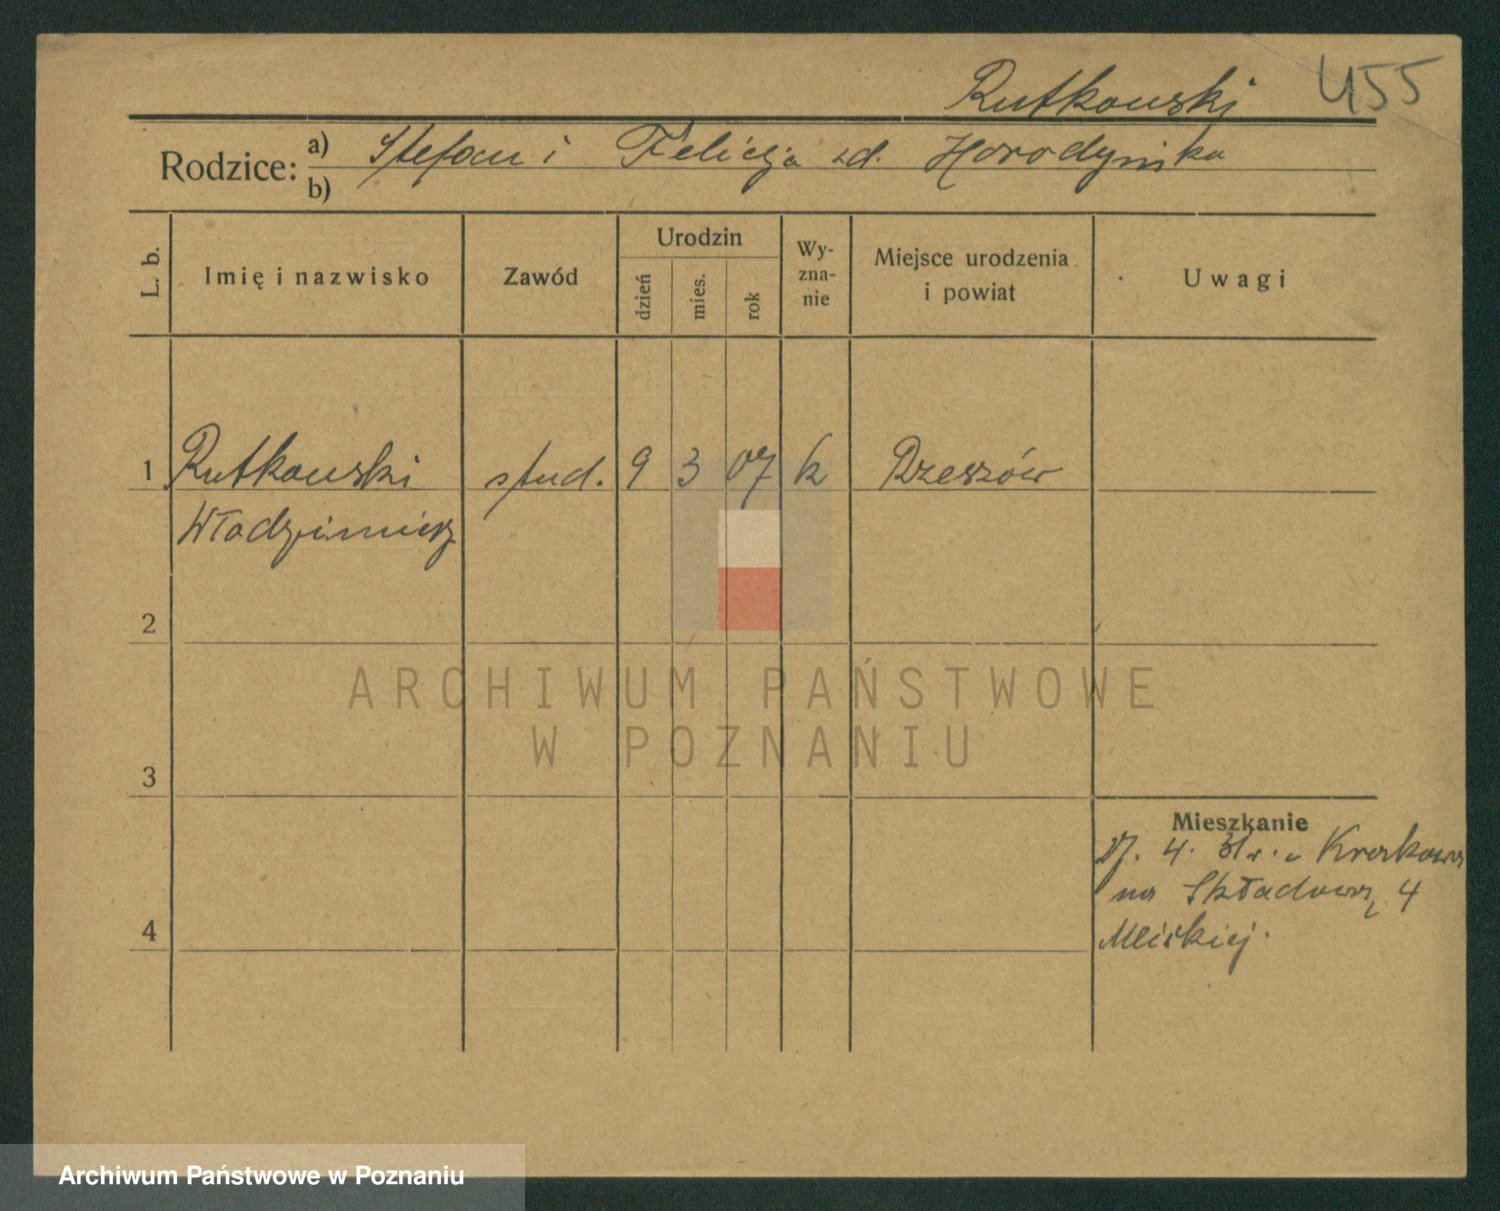 Rutkowski 455
Rodzice: a) Stefan i Felicja zd. Horodyńska
b)
L. b. Imię i nazwisko Zawód Urodzin dzień mies. rok Wy-zna-nie Miejsce urodzenia i powiat Uwagi
1 Rutkowski stud. 9 3 07 k Rzeszów
Włodzimierz
2
ARCHIWUM PAŃSTWOWE
W POZNANIU
3
Mieszkanie
4. 31 r. z Krakowa
na Składową 4
4
Archiwum Państwowe w Poznaniu